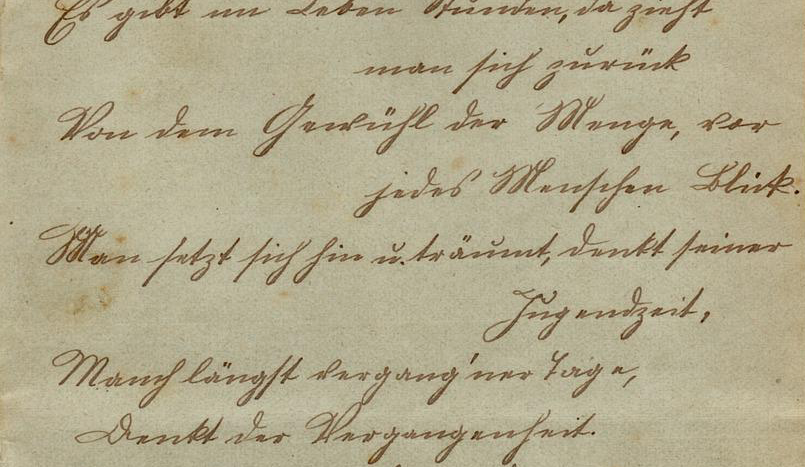 Es gibt im Leben Stunden, da zieht
man sich zurück
Von dem Gewühl der Menge, vor
jedes Menschen Blick.
Man setzt sich hin u. träumt, denkt seiner
Jugendzeit,
Manch längst vergang'ner Tage,
Denkt der Vergangenheit.